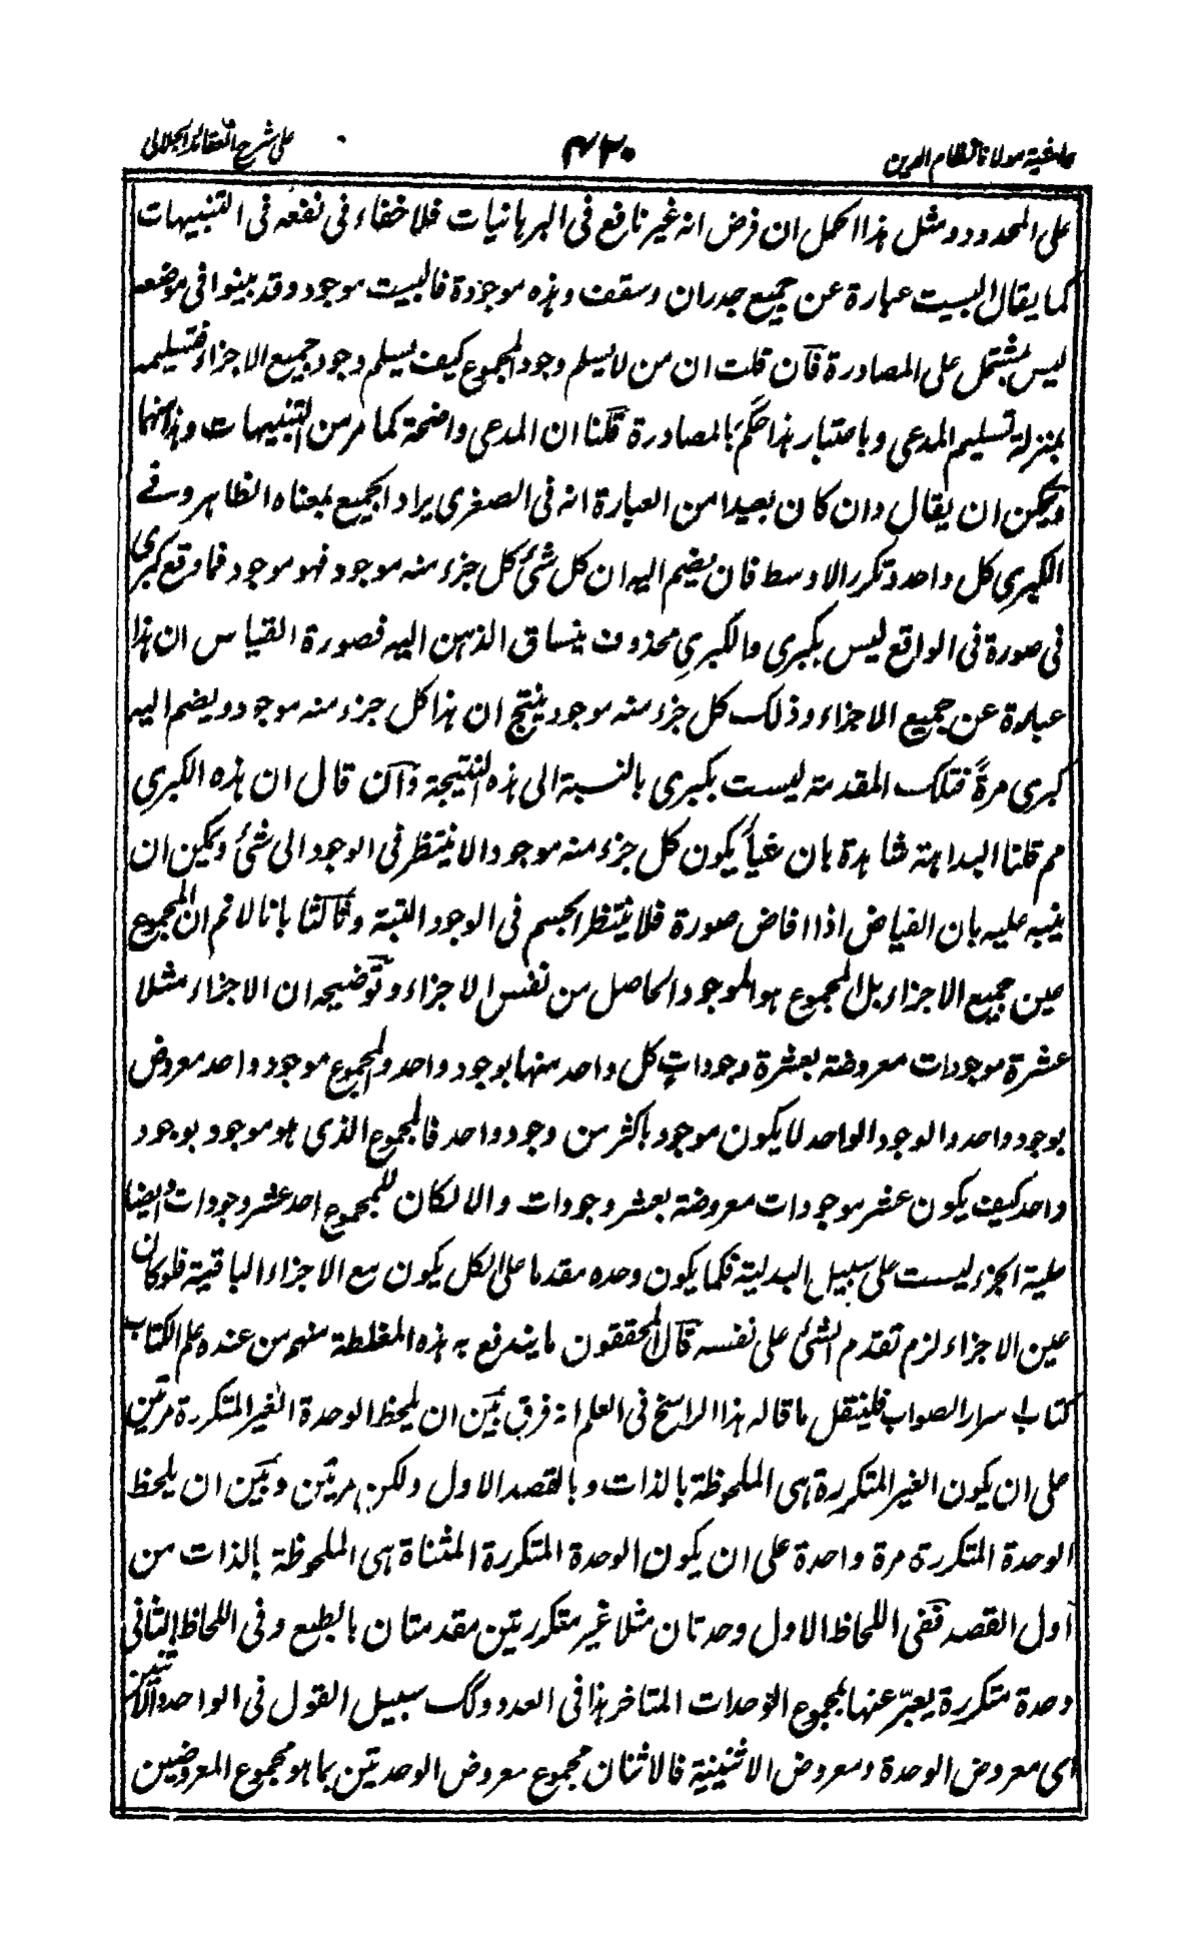 حاشية مولانا نظام الدين
۴۲۰
على شرح العقائد الجلالى
على المحدود ومثل هذا الحمل ان فرض انه غير نافع فى البرهانيات فلا خفاء فى نفعه فى التنبيهات
كما يقال البيت عبارة عن جميع جدران وسقف وهذه موجودة فالبيت موجود وقد بينوا فى موضعه
ليس يشتمل على المصادرة فان قلت ان من لا يسلم وجود المجموع كيف يسلم وجود جميع الاجزاء فتسليمه
بمنزلة تسليم المدعى وباعتبار هذا حكم بالمصادرة قلنا ان المدعى واضحة كما مر من التنبيهات وهذا منها
ويمكن ان يقال وان كان بعيدا من العبارة انه فى الصغرى يراد الجميع بمعناه الظاهر وفے
الكبرى كل واحد وتكرر الاوسط فان يضم اليه ان كل شئ كل جزء منه موجود فهو موجود فما وقع كبرى
فى صورة فى الواقع ليس بكبرى والكبرى محذوف ينساق الذهن اليه فصورة القياس ان هذا
عبارة عن جميع الاجزاء وذلك كل جزء منه موجود ينتج ان هذا كل جزء منه موجود ويضم اليه
كبرى مرة فتلك المقدمة ليست بكبرى بالنسبة الى هذه النتيجة وان قال ان هذه الكبرى
مم قلنا البداهة شاهدة بان شيأ يكون كل جزء منه موجودا لا ينتظر فى الوجود الى شئ ويمكن ان
ينبه عليه بان الفياض اذا افاض صورة فلا ينتظر الجسم فى الوجود البتة وثالثا بانا لا نم ان المجموع
عين جميع الاجزاء بل المجموع هو الموجود الحاصل من نفس الاجزاء وتوضيحه ان الاجزاء مثلا
عشرة موجودات معروضة بعشرة وجودات كل واحد منها بوجود واحد والمجموع موجود واحد معروض
بوجود واحد والوجود الواحد لا يكون موجود باكثر من وجود واحد فالمجموع الذى هو موجود بوجود
واحد كيف يكون عشر موجودات معروضة بعشر وجودات والا لكان للمجموع احد عشر وجودات وايضا
علية الجزء ليست على سبيل البدلية فكما يكون وحده مقدما على الكل يكون مع الاجزاء الباقية فلو كان
عين الاجزاء لزم تقدم الشئ على نفسه قال المحققون ما يندفع به هذه المغلطة منهم من عنده علم الكتاب
كتاب اسرار الصواب فلينقل ما قاله هذا الراسخ فى العلم انه فرق بين ان يلحظ الوحدة الغير المتكررة مرتين
على ان يكون الغير المتكررة هى الملحوظة بالذات وبالقصد الاول ولكن مرتين وبين ان يلحظ
الوحدة المتكررة مرة واحدة على ان يكون الوحدة المتكررة المثناة هى الملحوظة بالذات من
اول القصد ففى اللحاظ الاول وحدتان مثلا غير متكررتين مقدمتان بالطبع وفى اللحاظ الثانى
وحدة متكررة يعبر عنها بمجموع الوحدات المتاخر هذا فى العدد وكك سبيل القول فى الواحد والاثنين
اى معروض الوحدة ومعروض الاثنينية فالاثنان مجموع معروض الوحدتين بما هو مجموع المعروضين